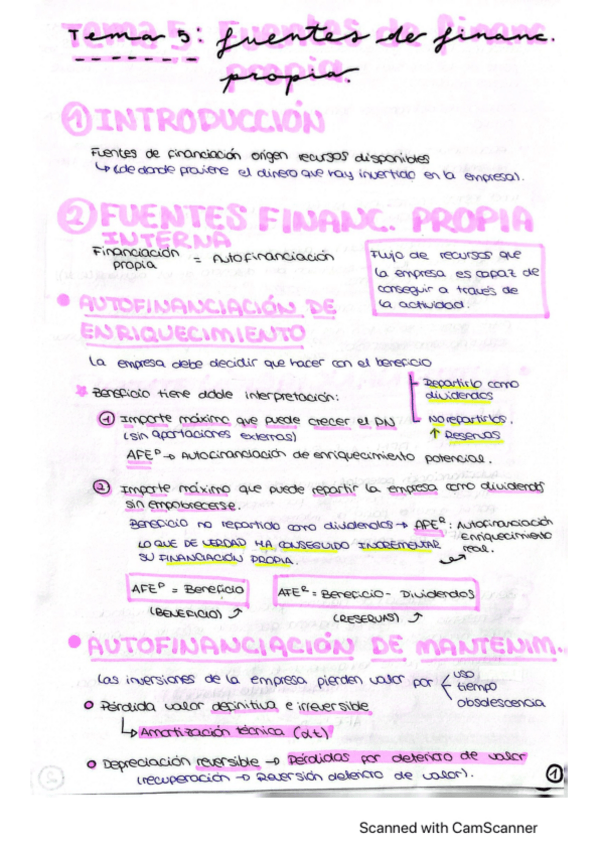 Tema 5: Fuentes de financ.
propia.
① INTRODUCCIÓN
Fuentes de financiación origen recursos disponibles
↳ (de donde proviene el dinero que hay invertido en la empresa).
② FUENTES FINANC. PROPIA
INTERNA
Financiación propia = Autofinanciación
Flujo de recursos que
la empresa es capaz de
conseguir a través de
la actividad.
• AUTOFINANCIACIÓN DE
ENRIQUECIMIENTO
La empresa debe decidir que hacer con el beneficio
Repartirlo como
dividendos
No repartirlos.
↑ Reservas
* Beneficio tiene doble interpretación:
① Importe máximo que puede crecer el PN
(sin aportaciones externas)
AFEᴾ → Autofinanciación de enriquecimiento potencial.
② Importe máximo que puede repartir la empresa como dividendos
sin empobrecerse.
Beneficio no repartido como dividendos → AFEᴿ: Autofinanciación
Enriquecimiento
real.
LO QUE DE VERDAD HA CONSEGUIDO INCREMENTAR
SU FINANCIACIÓN PROPIA.
AFEᴾ = Beneficio
(BENEFICIO)
AFEᴿ = Beneficio - Dividendos
(RESERVAS)
• AUTOFINANCIACIÓN DE MANTENIM.
Las inversiones de la empresa pierden valor por
uso
tiempo
obsolescencia
Pérdida valor definitiva e irreversible
↳ Amortización técnica (αt)
Depreciación reversible → Pérdidas por deterioro de valor
(recuperación → Reversión deterioro de valor).
①
Scanned with CamScanner